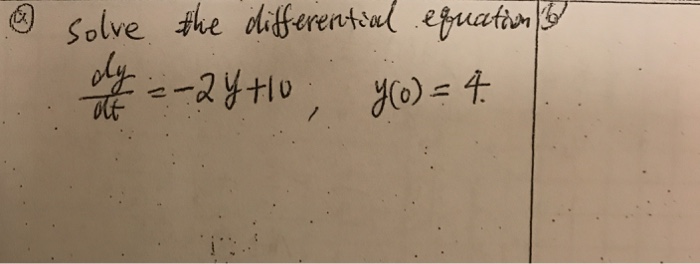 Solve the differential equation
dy/dt = -2y+10, y(0) = 4.